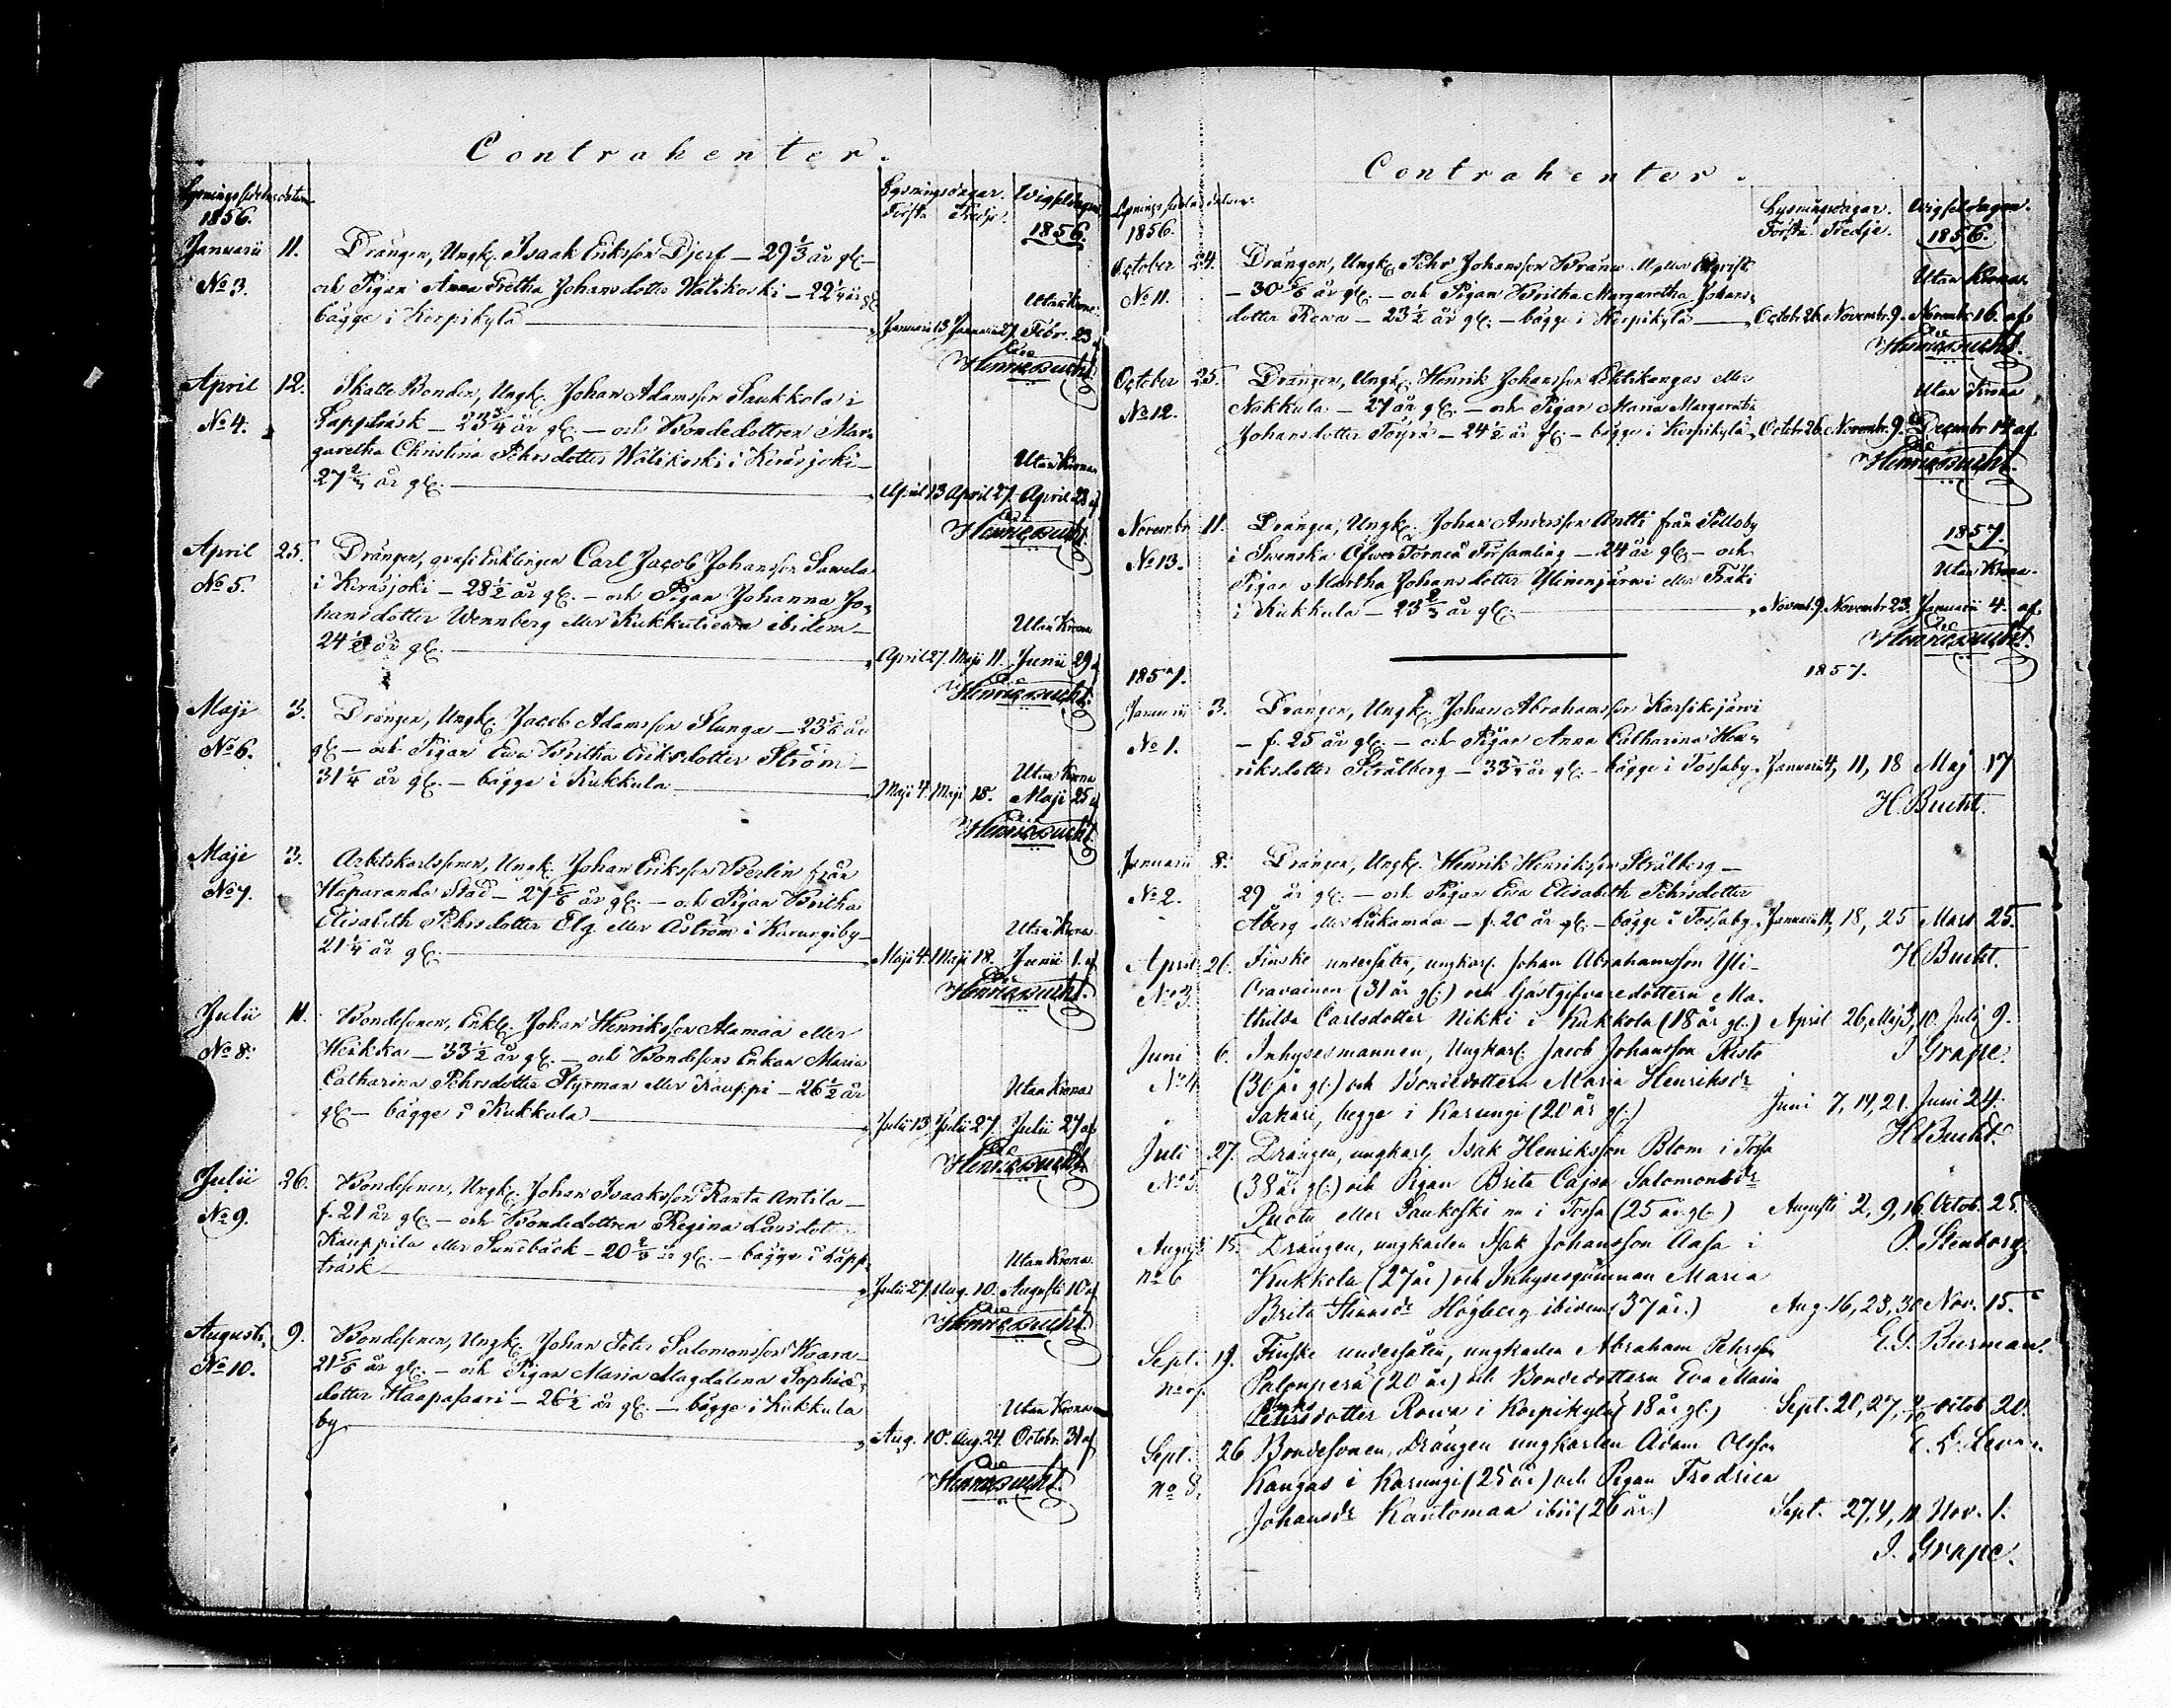 Contrahenter.
Lysningssedelns datum
1856.
Lysningsdagar.
Första Tredje.
Wigseldagen
1856.
Januarii 11. Drängen, Ungk. Isaak Eriksson Djerf — 29 1/3 år gl. —
No 3. och Pigan Anna Fretha Johansdotter Wälikoski — 22 1/4 år gl.
Utan Krona
bägge i Korpikylä — Januarii 13 Januarii 27. Febr. 23 af
Henric Bucht.
April 12. Skatte Bonden, Ungk. Johan Adamsson Saukkola i
No 4. Lappträsk — 23 3/4 år gl. — och Bondedottren Mar-
garetha Christina Pehrsdotter Wälikoski i Keräsjoki —
Utan Krona
27 år gl. — April 13 April 27. April 28 af
Henric Bucht.
April 25. Drängen, Enklingen Carl Jacob Johansson Sawela
No 5. i Keräsjoki — 28 1/2 år gl. — och Pigan Johanna Jo-
hansdotter Wennberg eller Kukkutiewa ibidem —
Utan Krona
24 1/2 år gl. — April 27. Maji 11. Junii 29 af
Henric Bucht.
Maji 3. Drängen, Ungk. Jacob Adamsson Slunga — 23 5/6 år
No 6. gl. — och Pigan Ewa Britha Eriksdotter Ström —
Utan Krona
31 1/4 år gl. — bägge i Kukkula — Maji 4. Maji 18. Maji 25 af
Henric Bucht.
Maji 3. Arbetskarlssonen, Ungk. Johan Eriksson Berlin från
No 7. Haparanda Stad — 27 5/6 år gl. — och Pigan Britha
Elisabeth Pehrsdotter Elg eller Åström i Karungiby —
Utan Krona
21 1/4 år gl. — Maji 4. Maji 18. Junii 1. af
Henric Bucht.
Julii 11. Bondesonen, Enkl. Johan Henriksson Alamaa eller
No 8. Heikka — 33 1/2 år gl. — och Bondesons Enkan Maria
Catharina Pehrsdotter Styrman eller Kauppi — 26 1/2 år
Utan Krona
gl. — bägge i Kukkula — Julii 13 Julii 27. Julii 27 af
Henric Bucht.
Julii 26. Bondesonen, Ungk. Johan Isaaksson Ranta Antila —
No 9. f. 21 år gl. — och Bondedottren Regina Larsdott.
Kauppila eller Sundbäck — 20 2/3 år gl. — bägge i Lapp-
Utan Krona
träsk — Julii 27. Aug. 10. Augusti 10 af
Henric Bucht.
Augusti 9. Bondesonen, Ungk. Johan Peter Salomonsson Waara —
No 10. 21 5/6 år gl. — och Pigan Maria Magdalena Sophiæ-
dotter Haapasaari — 26 1/2 år gl. — bägge i Kukkula
Utan Krona
by — Aug. 10. Aug. 24. Octobr. 31 af
Henric Bucht.
Contrahenter.
Lysningssedelns datum
1856.
Lysningsdagar.
Första Tredje.
Wigseldagen.
1856.
October 24. Drängen, Ungk. Pehr Johansson Bränn eller Qwist
Utan Krona
No 11. — 30 5/6 år gl. — och Pigan Britha Margaretha Johans-
dotter Rowa — 23 1/2 år gl. — bägge i Korpikylä — Octob. 26. Novembr. 9. Novembr. 16. af
Henric Bucht.
October 25. Drängen, Ungk. Henrik Johansson Lehtikangas eller
Utan Krona
No 12. Nakkula — 27 år gl. — och Pigan Maria Margaretha
Johansdotter Töyrä — 24 1/2 år gl. — bägge i Korpikylä — Octobr 26. Novembr. 9. Decembr 14 af
Henric Bucht.
Novembr 11. Drängen, Ungk. Johan Andersson Antti från Pelloby
1857.
No 13. i Swenska Öfwer Torneå Församling — 24 år gl. — och
Utan Krona.
Pigan Martha Johansdotter Ylinenjärwi eller Fräki
i Kukkula — 23 2/3 år gl. — Novemb. 9. Novembr 23. Januarii 4. af
Henric Bucht.
1857. 1857.
Januarii 3. Drängen, Ungk. Johan Abrahamsson Karsikojärwi
No 1. — f. 25 år gl. — och Pigan Anna Catharina Hen-
riksdotter Strålberg — 33 år gl. — bägge i Tossaby. Januarii 4, 11, 18 Maj 17
H. Bucht.
Januarii 8. Drängen, Ungk. Henrik Henriksson Strålberg —
No 2. 29 år gl. — och Pigan Ewa Elisabeth Pehrsdotter
Åberg eller Liikamaa — f. 20 år gl. — bägge i Tossaby. Januarii 11, 18, 25 Mars 25.
H. Bucht.
April 26. Finske undersåten, ungkarl. Johan Abrahamsson Yli-
No 3. Oravainen (31 år gl.) och Gästgifvaredottern Ma-
thilda Carlsdotter Nikki i Kukkola (18 år gl.) April 26, Maj 3, 10. Juli 9.
I Grape.
Juni 6. Inhysesmannen, Ungkarl. Jacob Johansson Risto
No 4 (30 år gl.) och Bondedottern Maria Henriksdr
Sakari, begge i Karungi (20 år gl.) Juni 7, 14, 21. Juni 24.
H. Bucht.
Juli 27. Drängen, ungkarl. Isak Henriksson Blom i Tossa
No 5 (38 år gl.) och Pigan Brita Cajsa Salomonsdr
Ruotu eller Saukoski nu i Tossa (25 år gl.) Augusti 2, 9, 16. Octob. 25.
P. Stenborg
August 15. Drängen, ungkarlen Isak Johansson Aasa i
no 6 Kukkola (27 år) och Inhysesqvinnan Maria
Brita Hansdr Högberg ibidem (37 år.) Aug. 16, 23, 30 Nov. 15.
E. J. Burman.
Sept. 19. Finske undersåten, ungkarlen Abraham Pehrss.
no 7. Palonperä (20 år) och Bondedottern Eva Maria
Pehrsdotter Rowa i Korpikylä (18 år gl.) Sept. 20, 27, 4/10 Octob 20.
Sept. 26 Bondesonen, Drängen ungkarlen Adam Olofss.
no 8. Kangas i Karungi (25 år) och Pigan Fredrica
Johansdr Kantomaa ibid (26 år.) Sept. 27, 4, 11 Nov. 1.
I. Grape.